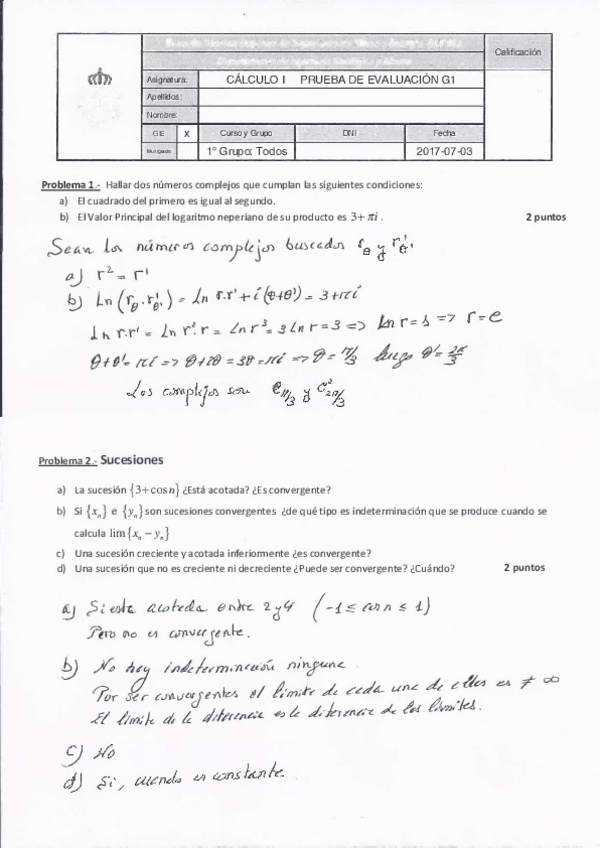 Calificación
Asignatura: CÁLCULO I PRUEBA DE EVALUACIÓN G1
Apellidos:
Nombre:
GIE X Curso y Grupo DNI Fecha
1º Grupo: Todos 2017-07-03
Problema 1.- Hallar dos números complejos que cumplan las siguientes condiciones:
a) El cuadrado del primero es igual al segundo.
b) El Valor Principal del logaritmo neperiano de su producto es 3+πi . 2 puntos
Sean los números complejos buscados r_θ y r'_θ'
a) r² = r'
b) Ln(r_θ · r'_θ') = Ln r·r' + i(θ+θ') = 3+πi
Ln r·r' = Ln r²·r = Ln r³ = 3 Ln r = 3 => Ln r = 1 => r = e
θ+θ' = πi => θ+2θ = 3θ = πi => θ = π/3 luego θ' = 2π/3
Los complejos son e_π/3 y e²_2π/3
Problema 2.- Sucesiones
a) La sucesión {3+cos n} ¿Está acotada? ¿Es convergente?
b) Si {x_n} e {y_n} son sucesiones convergentes ¿de qué tipo es indeterminación que se produce cuando se
calcula lim{x_n − y_n}
c) Una sucesión creciente y acotada inferiormente ¿es convergente?
d) Una sucesión que no es creciente ni decreciente ¿Puede ser convergente? ¿Cuándo? 2 puntos
a) Si esta acotada entre 2 y 4 (-1 ≤ cos n ≤ 1)
Pero no es convergente.
b) No hay indeterminación ninguna.
Por ser convergentes el límite de cada una de ellas es ≠ ∞
El límite de la diferencia es la diferencia de los límites.
c) No
d) Si, cuando es constante.